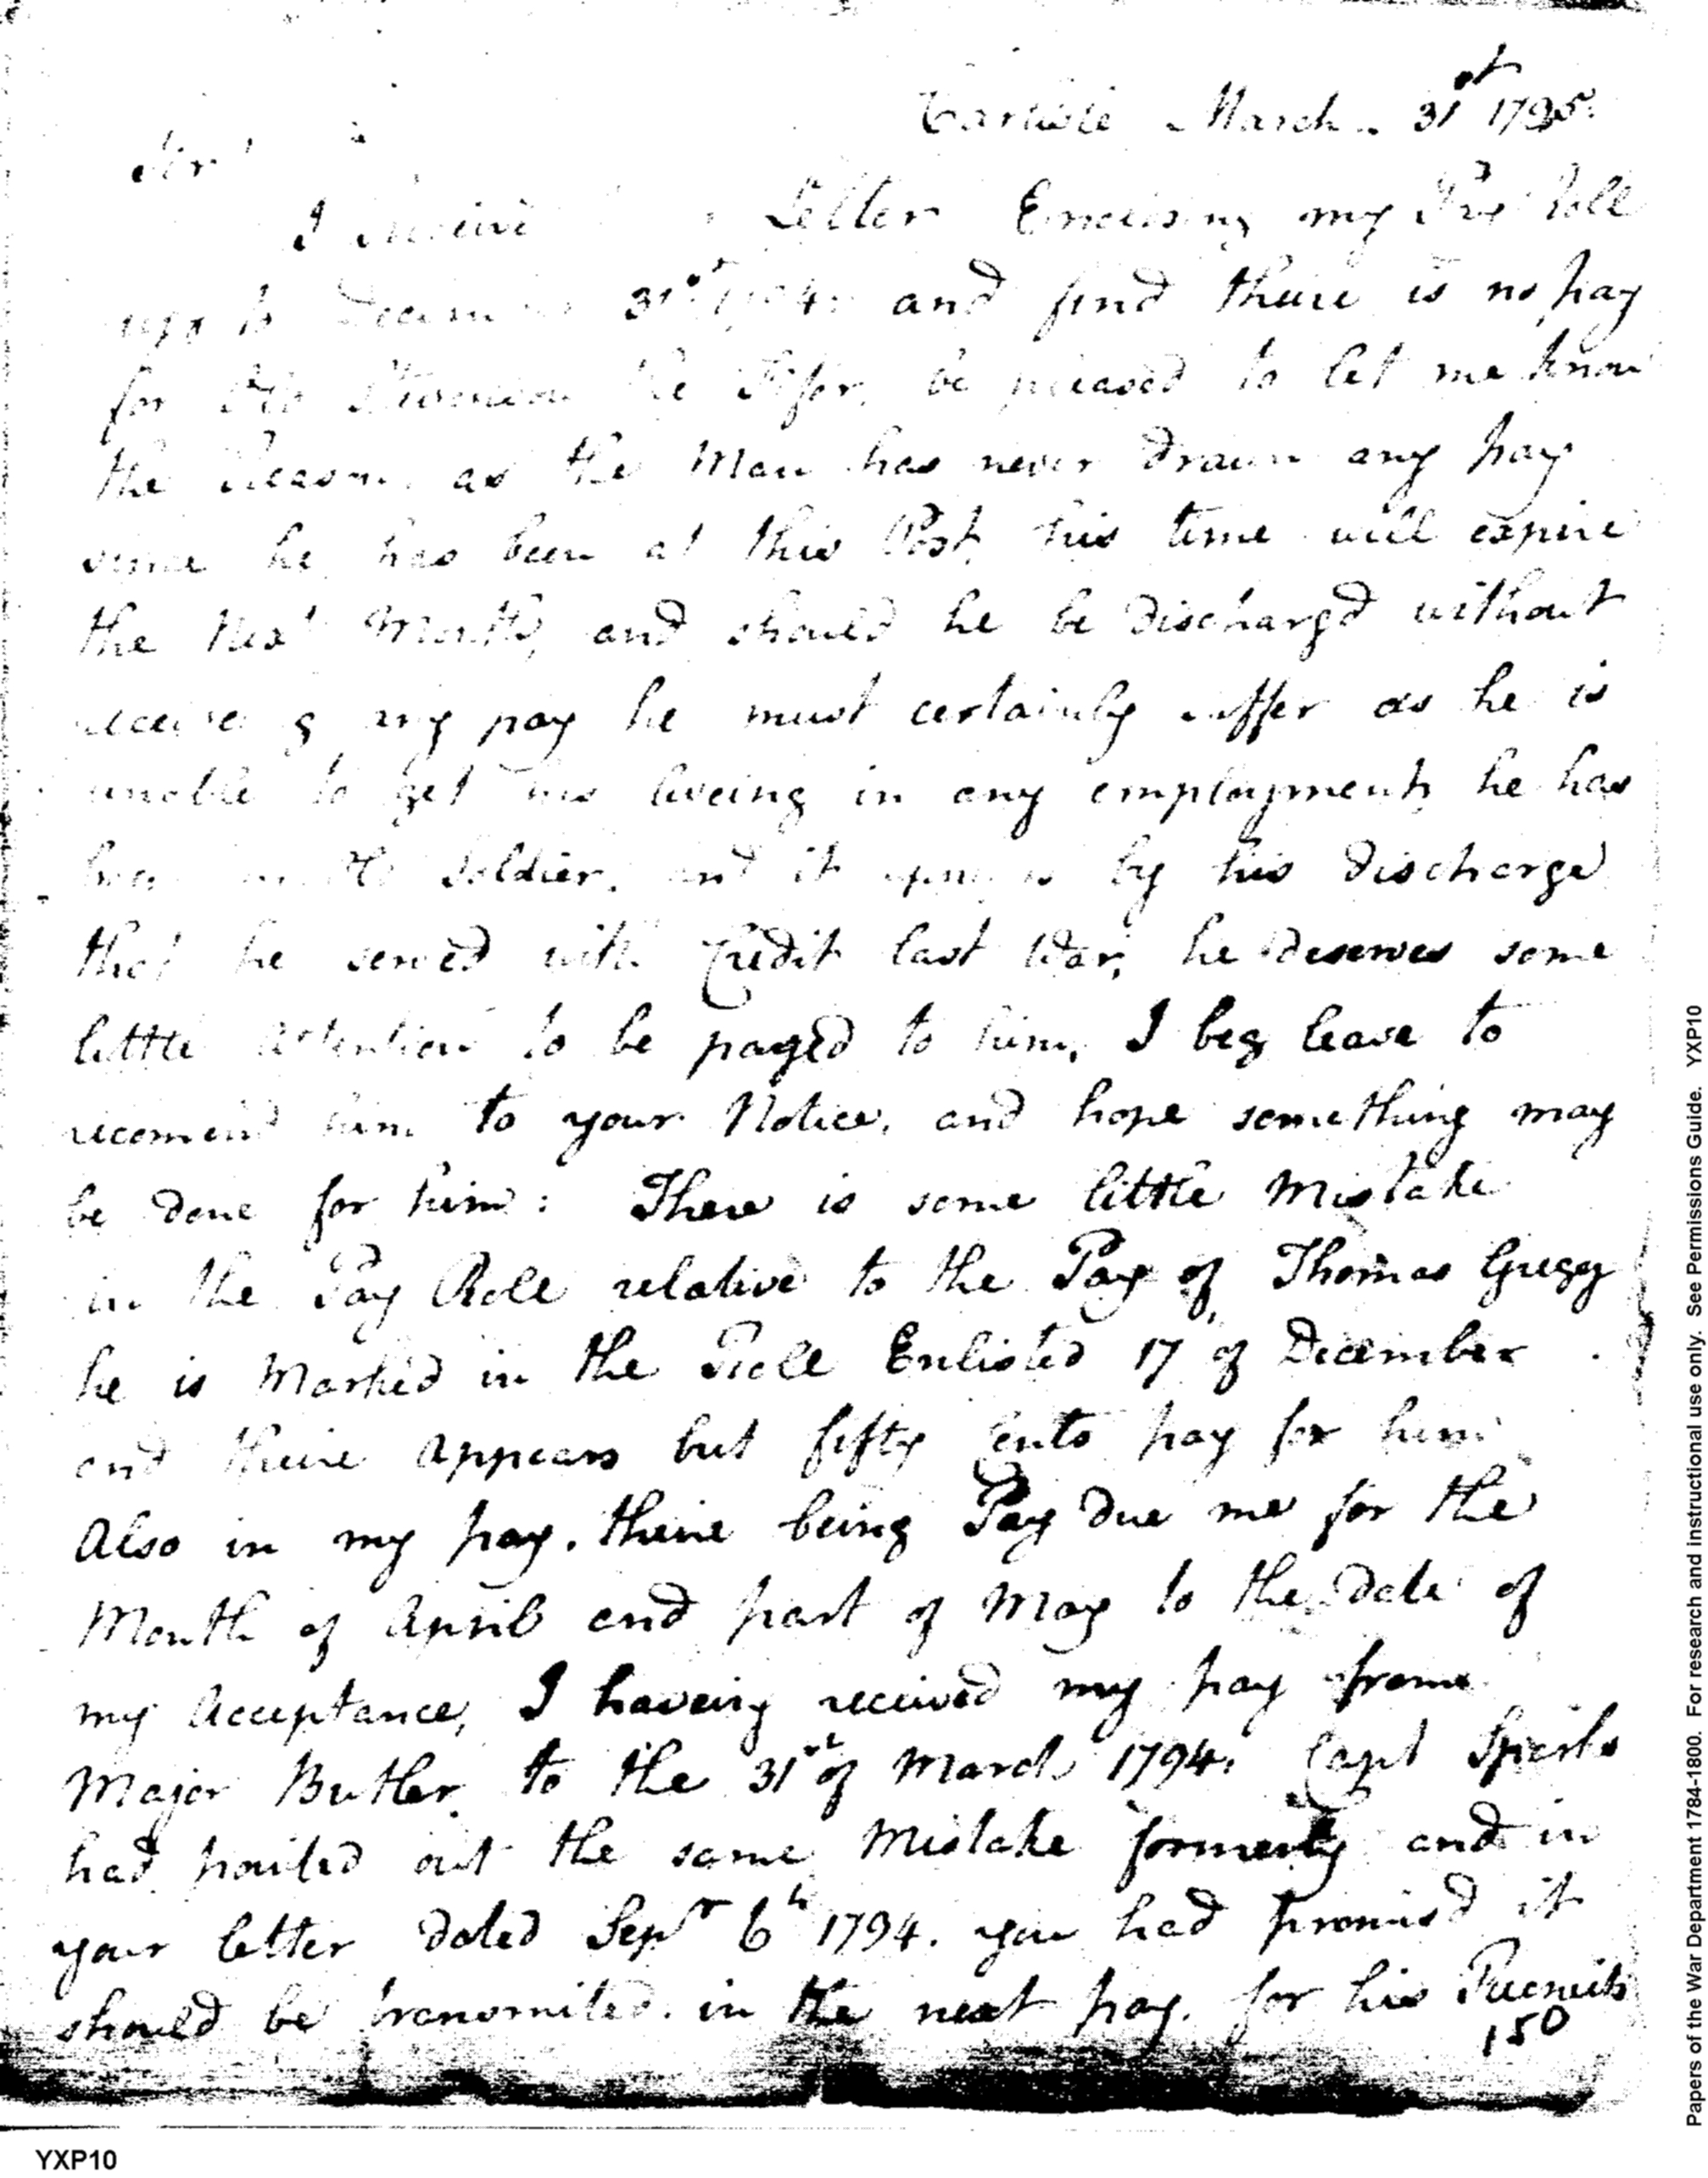 Carlisle March 31st 1795.
Sir
I Letter Encloseing my Pay Roll
up to December 31st 1794. and find theire is no pay
for the Fifer, be pleased to let me know
the Reason, as the Man has never drawn any pay
since he has been at this Post, his time will expire
the Next Month, and should he be Discharg'd without
receiveing any pay he must certainly suffer as he is
unable to get his liveing in any employment, he has
Soldier, and it by his Discharge
that he served with Credit last War, he Deserves some
little Attention to be payed to him, I beg leave to
recomend him to your Notice, and hope something may
be done for him: There is some little Mistake
in the Pay Role relative to the Pay of Thomas Gregg
he is Marked in the Role Enlisted 17 of December
and theire Appears but fifty Cents pay for him
Also in my pay. theire being Pay Due me for the
Month of April and part of May to the Date of
my Acceptance, I haveing received my pay frome
Major Butler to the 31st of March 1794. Capt
had pointed out the same Mistake formerly and in
your letter dated Sepr 6th 1794. you had promis'd it
should be transmited. in the next pay. for his Recruits
150
Papers of the War Department 1784-1800. For research and instructional use only. See Permissions Guide. YXP10
YXP10